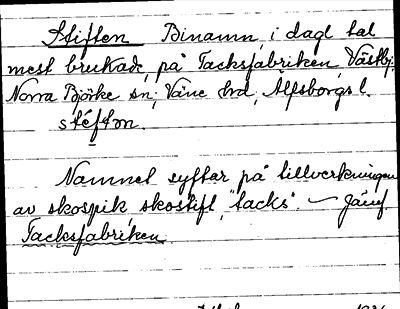 Stiften Binamn, i dagl tal
mest brukade, på Tacksfabriken, Västbj.
Norra Björke sn; Väne hd, Älfsborgs l.
Namnet syftar på tillverkningen
av skospik, skostift, "tacks". – Jämf.
Tacksfabriken.